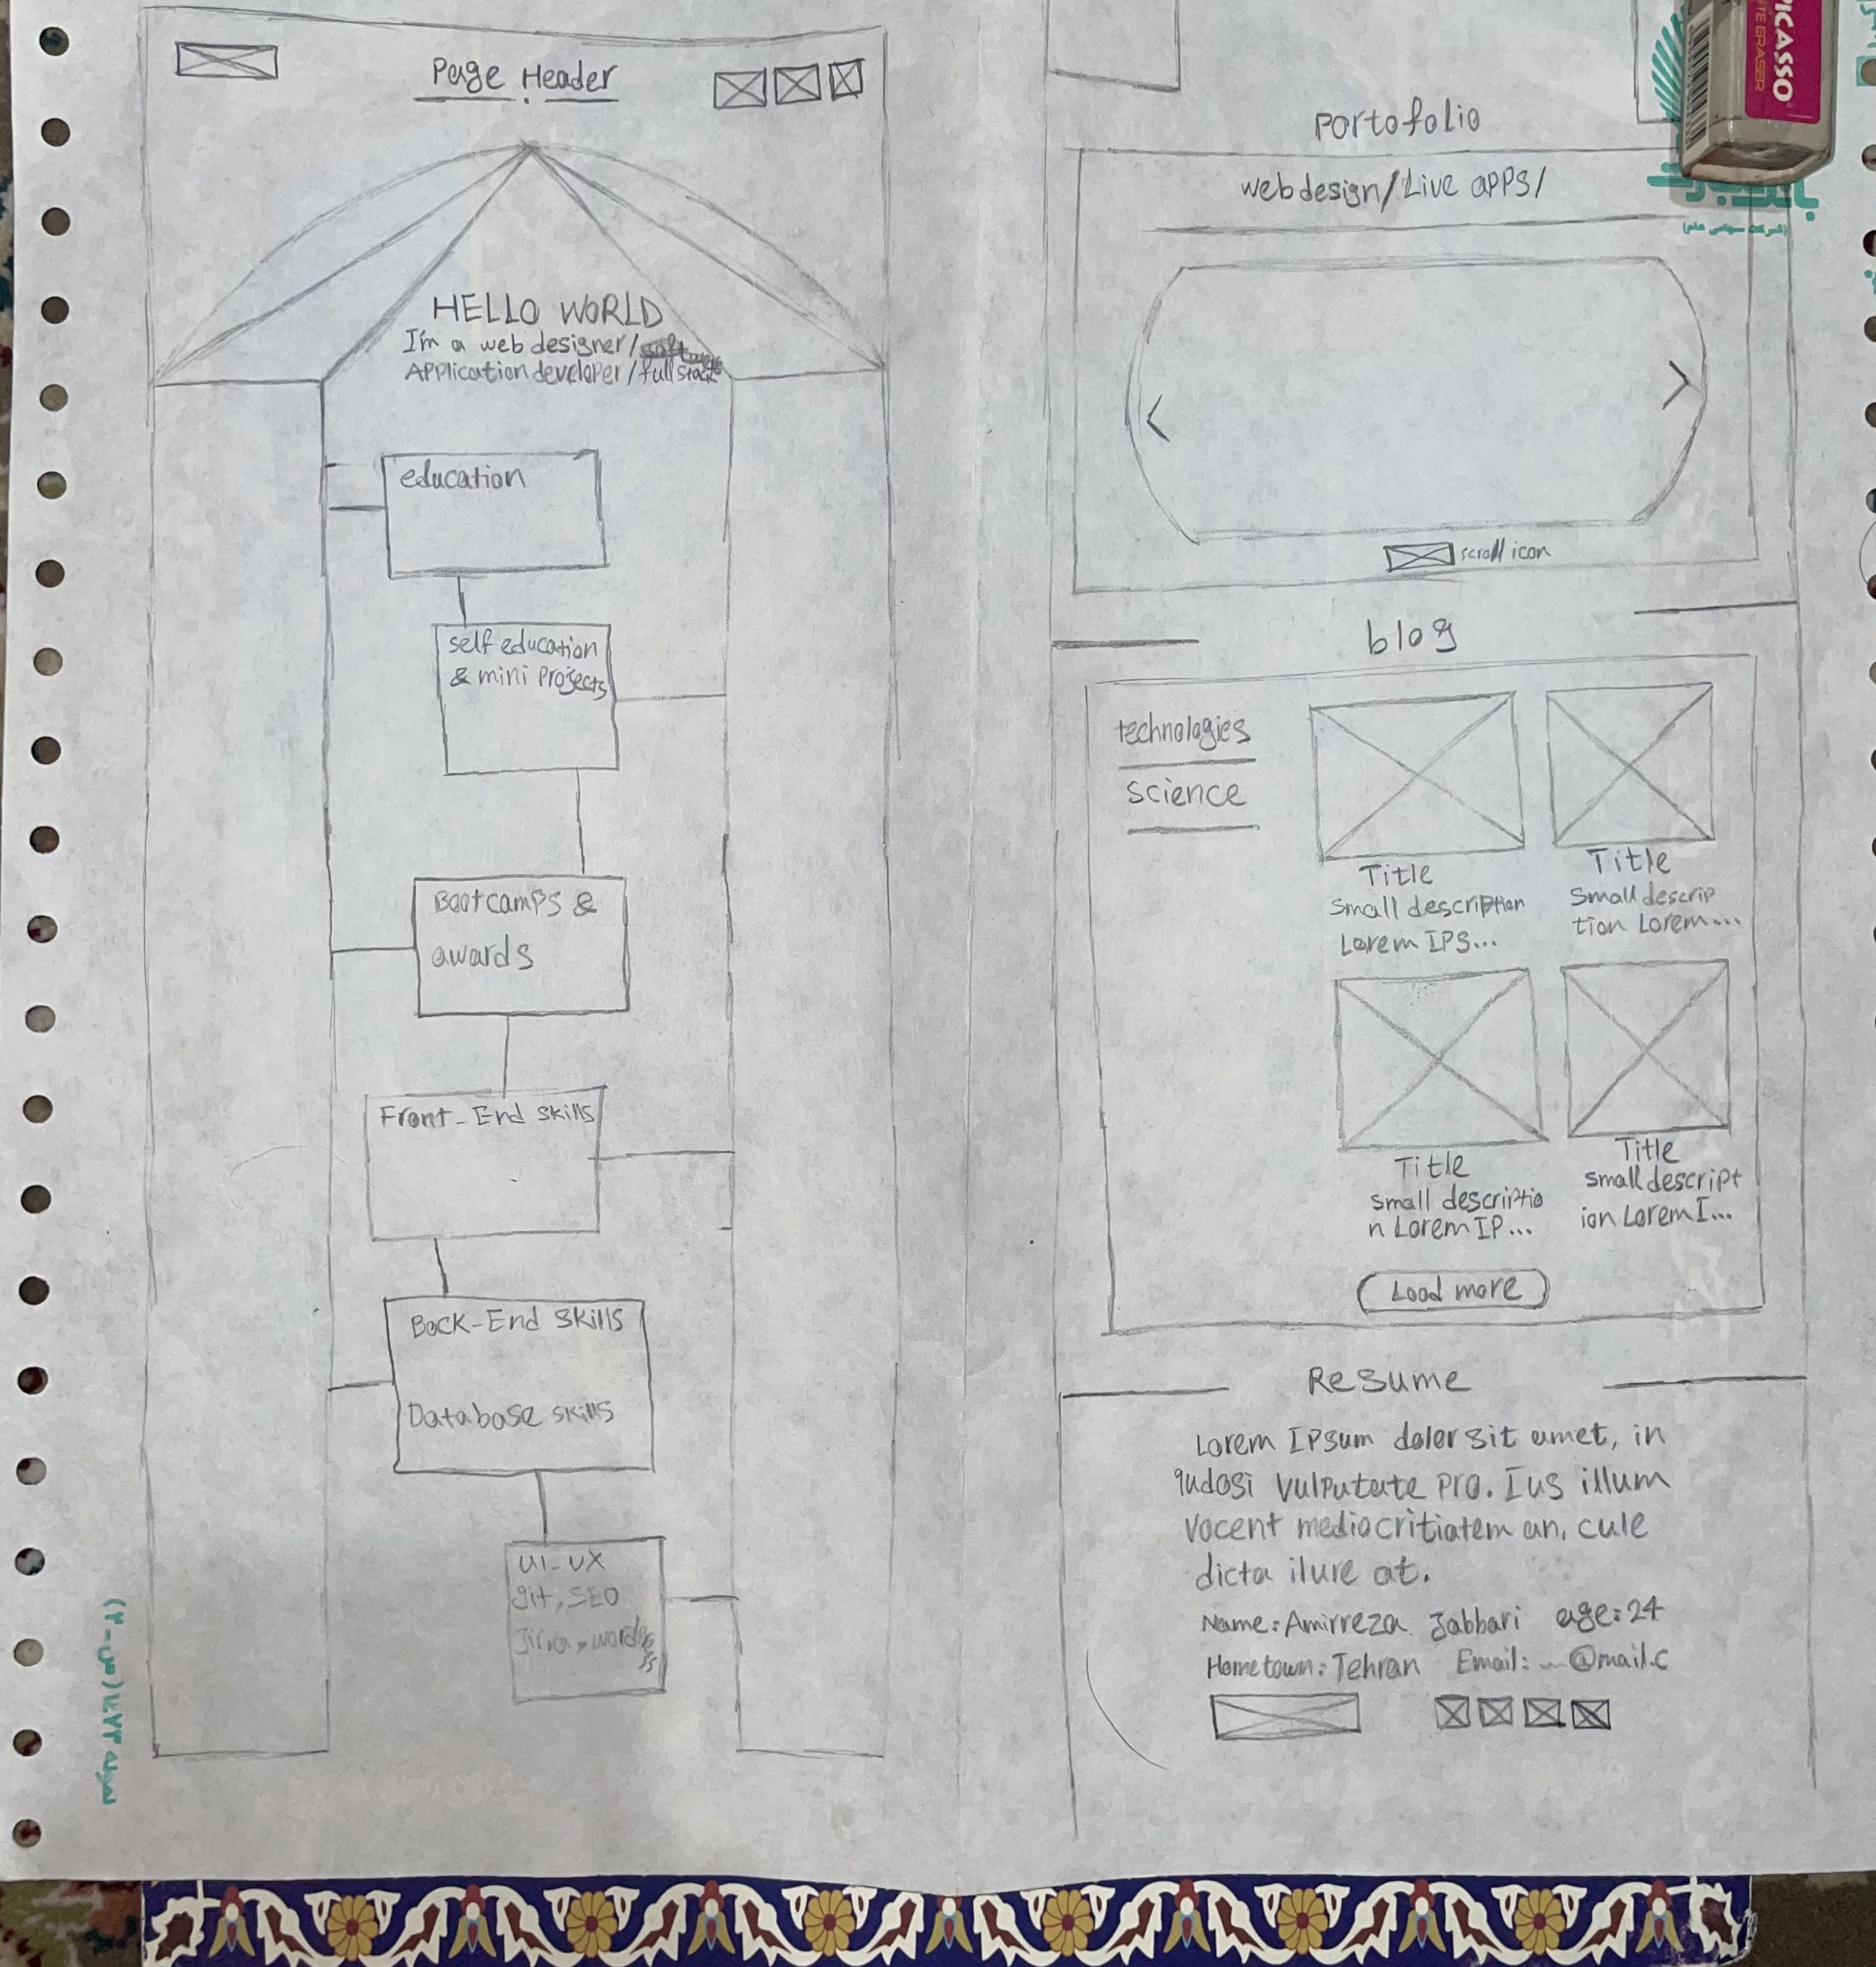 Page Header
HELLO WORLD
I'm a web designer/
Application developer/full stack
education
self education
& mini Projects
Bootcamps &
awards
Front-End skills
Back-End skills
Database skills
UI-UX
git, SEO
Jira,
PICASSO
ERASER
Portofolio
web design/Live apps/
(شرکت سهامی عام)
< >
scroll icon
blog
technologies
science
Title
Small description
Lorem IPS...
Title
Small descrip
tion Lorem...
Title
small descriptio
n Lorem IP...
Title
small descript
ion Lorem I...
Load more
Resume
Lorem Ipsum dolor sit amet, in
qudosi vulputate pro. Ius illum
vocent mediocritiatem an, cule
dicta ilure at.
Name: Amirreza Jabbari age: 24
Hometown: Tehran Email: ...@mail.c